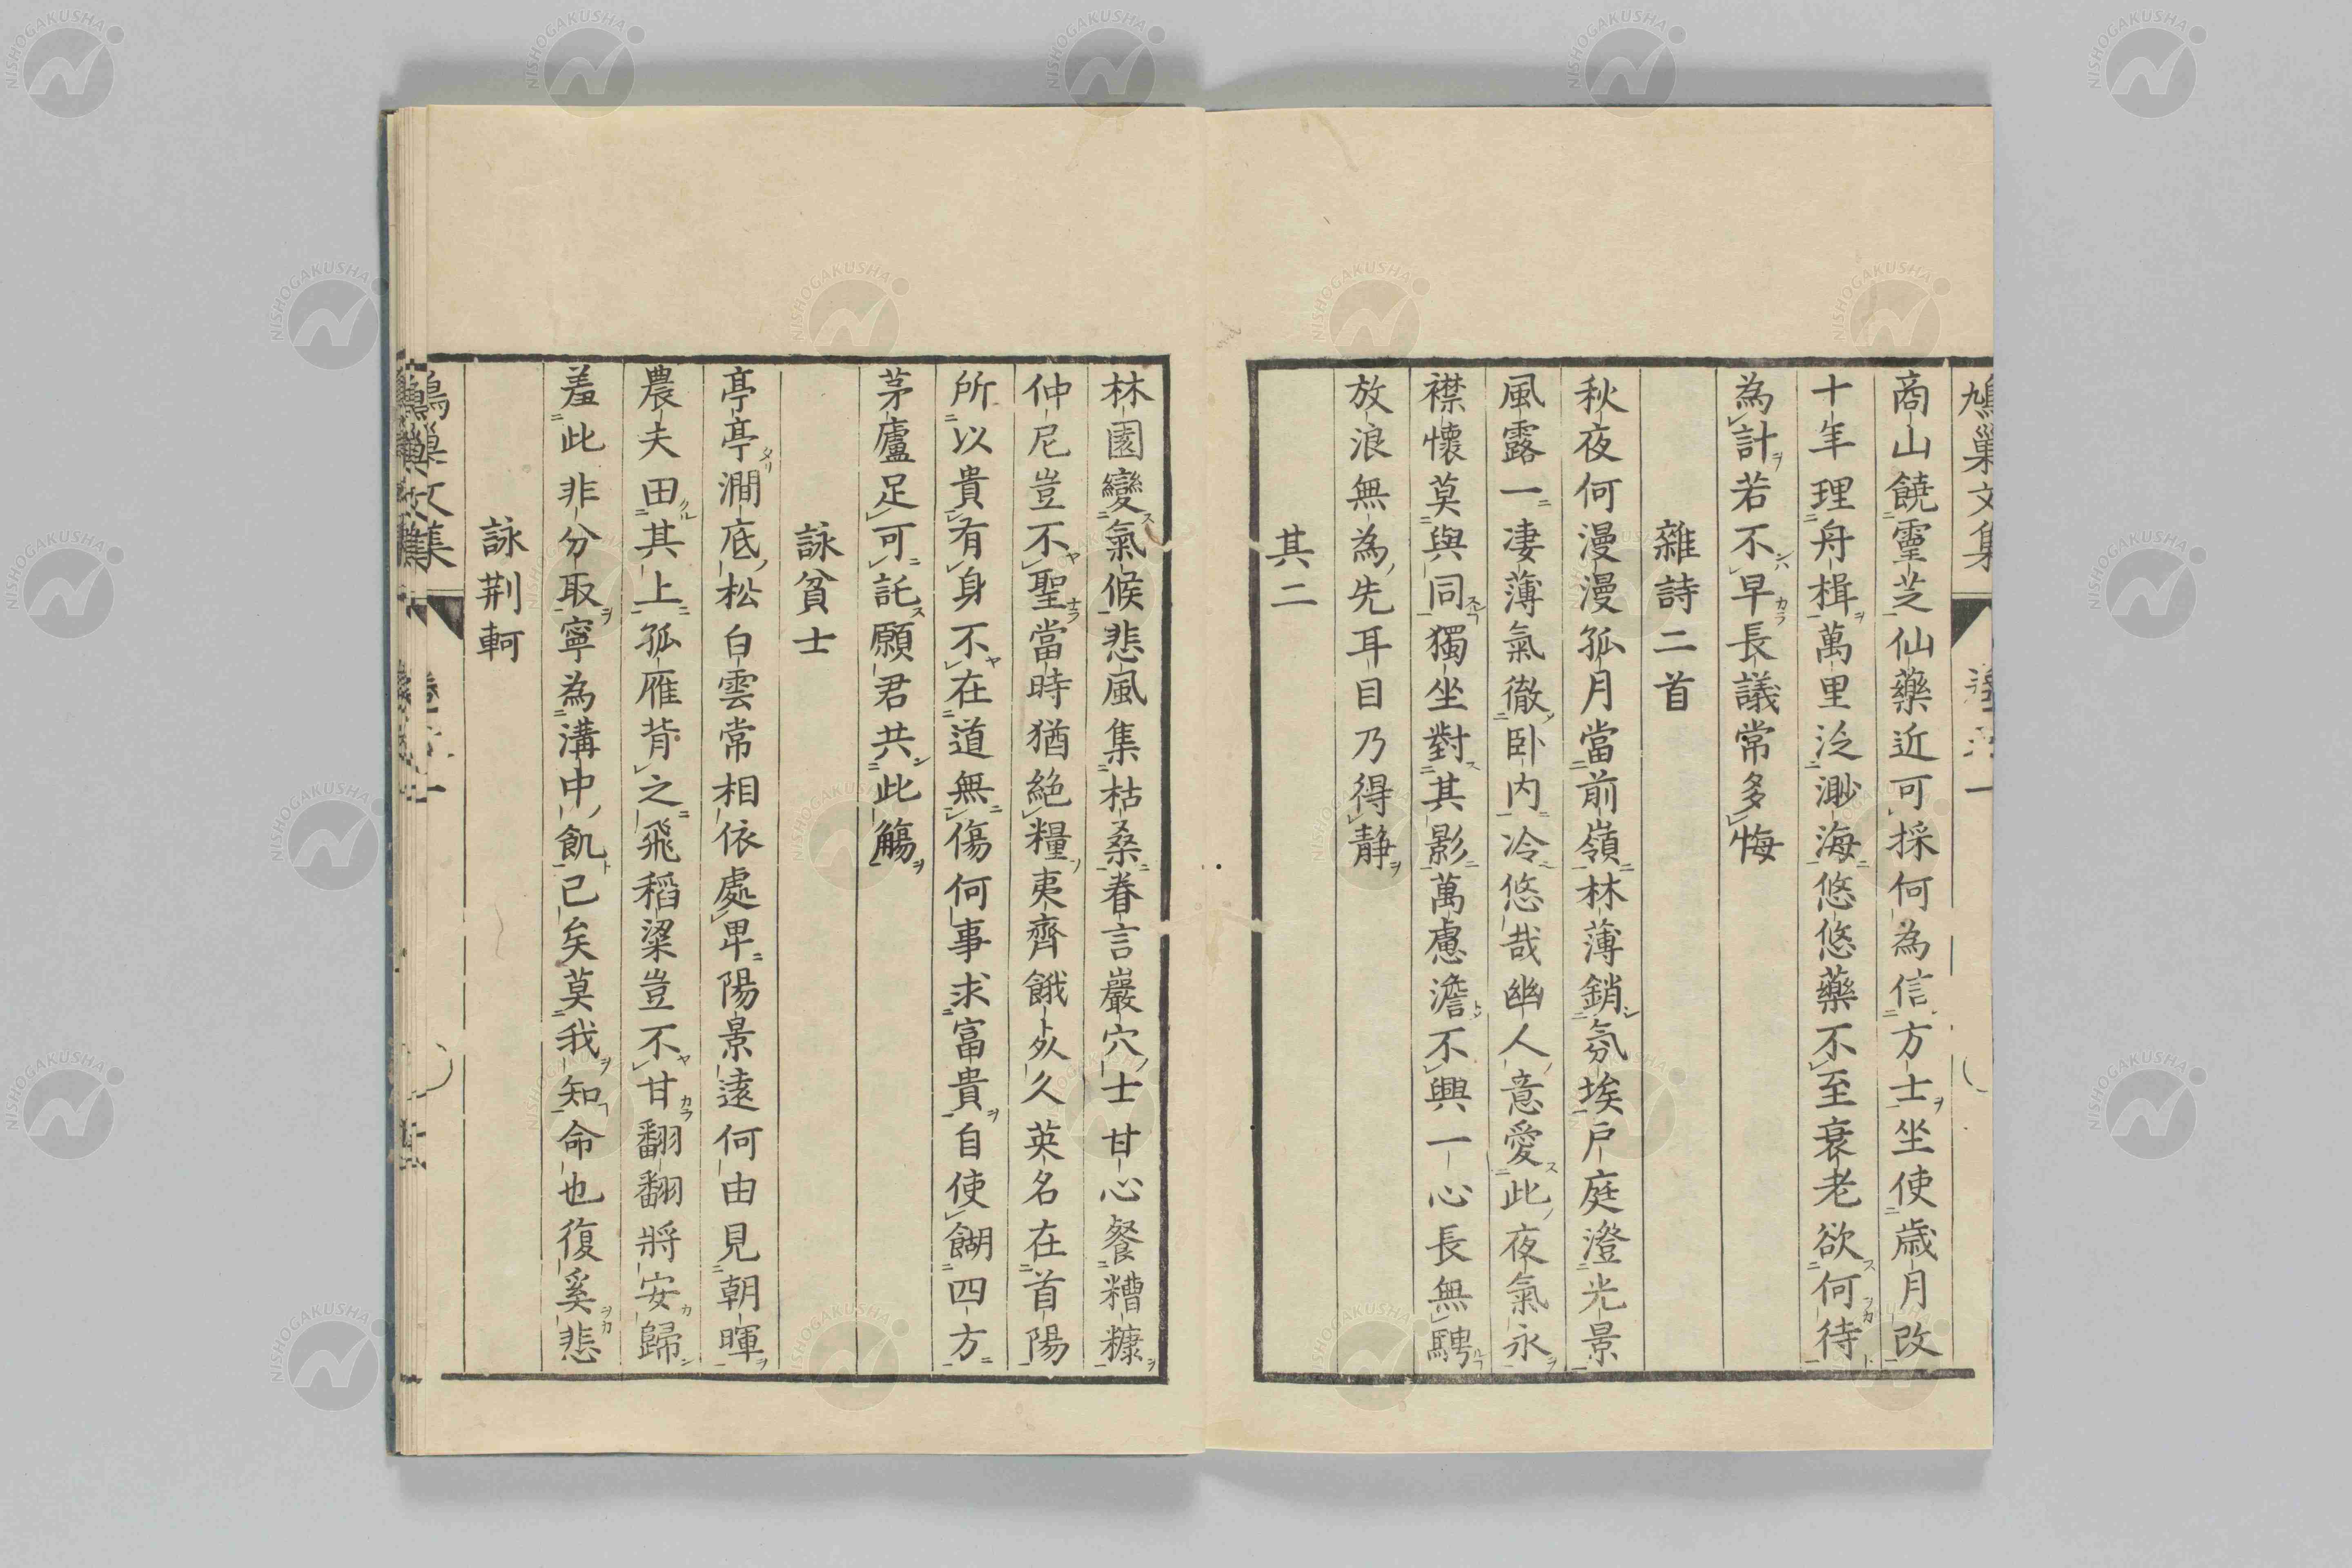 鳩巢文集
商山饒靈芝仙藥近可採何為信方士坐使歲月改
十年理舟楫萬里泛渺海悠悠藥不至衰老欲何待
為計若不早長議常多悔
雜詩二首
秋夜何漫漫孤月當前嶺林薄銷氛埃戶庭澄光景
風露一凄薄氣徹卧内冷悠哉幽人意愛此夜氣永
襟懷莫與同獨坐對其影萬慮澹不興一心長無騁
放浪無為先耳目乃得静
其二
林園變氣候悲風集枯桑眷言巖穴士甘心餐糟糠
仲尼豈不聖當時猶絶糧夷齊餓卜久英名在首陽
所以貴有身不在道無傷何事求富貴自使餬四方
茅廬足可託願君共此觴
詠貧士
亭亭澗底松白雲常相依處卑陽景遠何由見朝暉
農夫田其上孤雁背之飛稻粱豈不甘翻翻將安歸
羞此非分取寧為溝中飢已矣莫我知命也復奚悲
詠荆軻
NISHOGAKUSHA